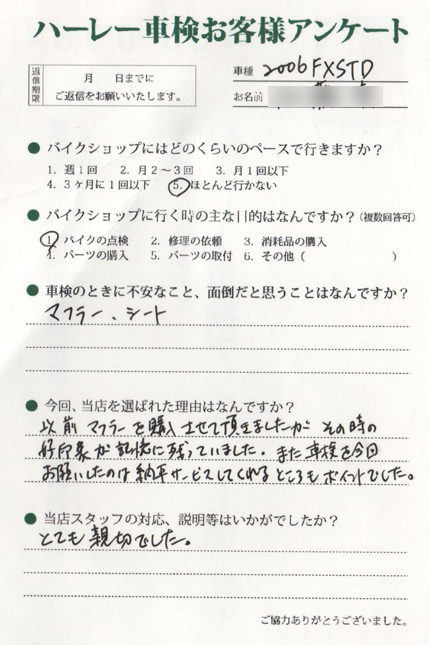 ハーレー車検お客様アンケート
返信期限
月 日までに
ご返信をお願いいたします。
車種 2006FXSTD
お名前
● バイクショップにはどのくらいのペースで行きますか?
1. 週1回 2. 月2~3回 3. 月1回以下
4. 3ヶ月に1回以下 5. ほとんど行かない
● バイクショップに行く時の主な目的はなんですか?(複数回答可)
1. バイクの点検 2. 修理の依頼 3. 消耗品の購入
4. パーツの購入 5. パーツの取付 6. その他( )
● 車検のときに不安なこと、面倒だと思うことはなんですか?
マフラー、シート
● 今回、当店を選ばれた理由はなんですか?
以前マフラーを購入させて頂きましたが その時の
好印象が記憶に残っていました。また車検を今回
お願いしたのは納車サービスしてくれるところもポイントでした。
● 当店スタッフの対応、説明等はいかがでしたか?
とても親切でした。
ご協力ありがとうございました。